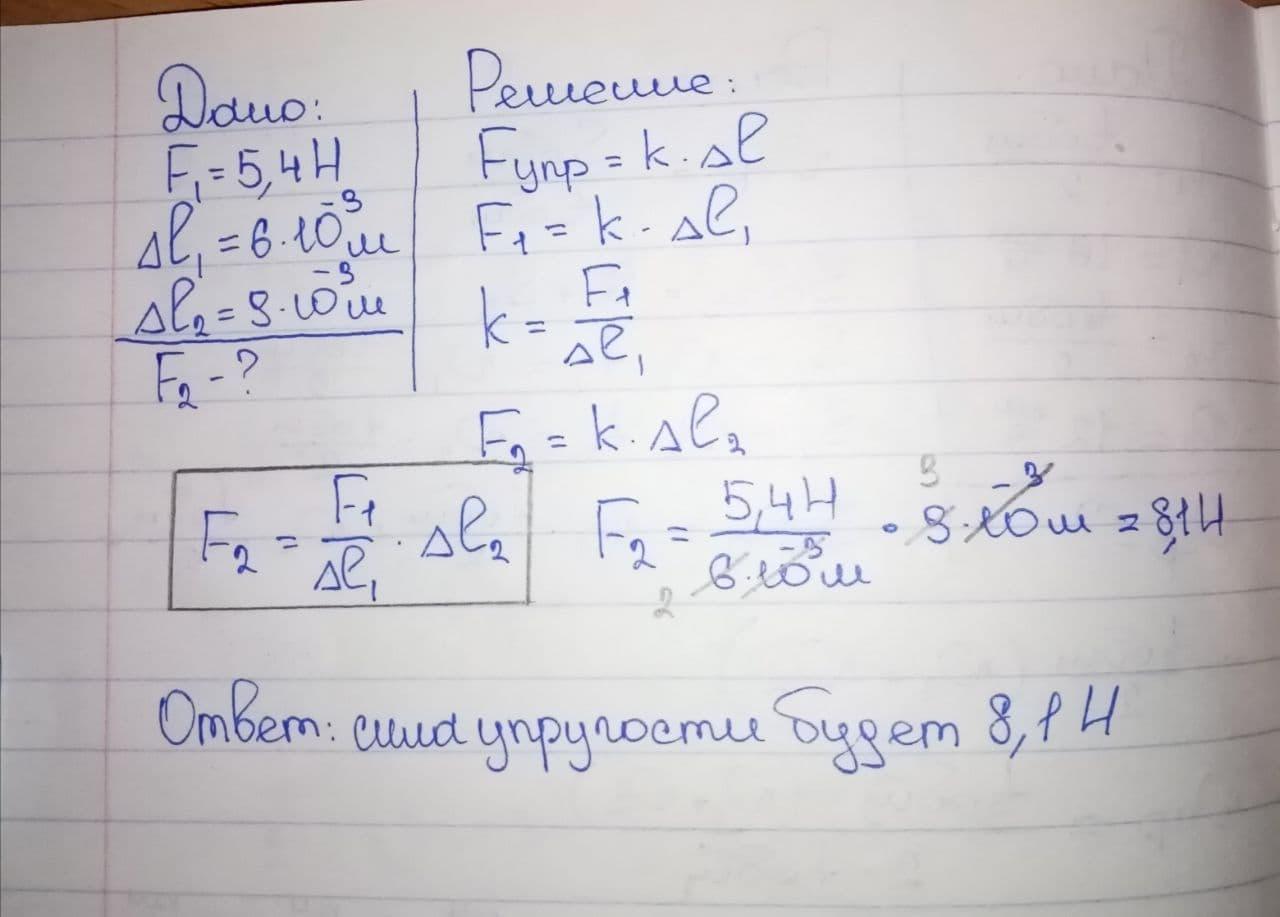 Дано:
F₁ = 5,4 Н
Δl₁ = 6·10⁻³ м
Δl₂ = 9·10⁻³ м
F₂ - ?
Решение:
Fупр = k · Δl
F₁ = k · Δl₁
k = F₁/Δl₁
F₂ = k · Δl₂
F₂ = F₁/Δl₁ · Δl₂
F₂ = 5,4 Н/6·10⁻³ м · 9·10⁻³ м = 8,1 Н
3
2
Ответ: сила упругости будет 8,1 Н